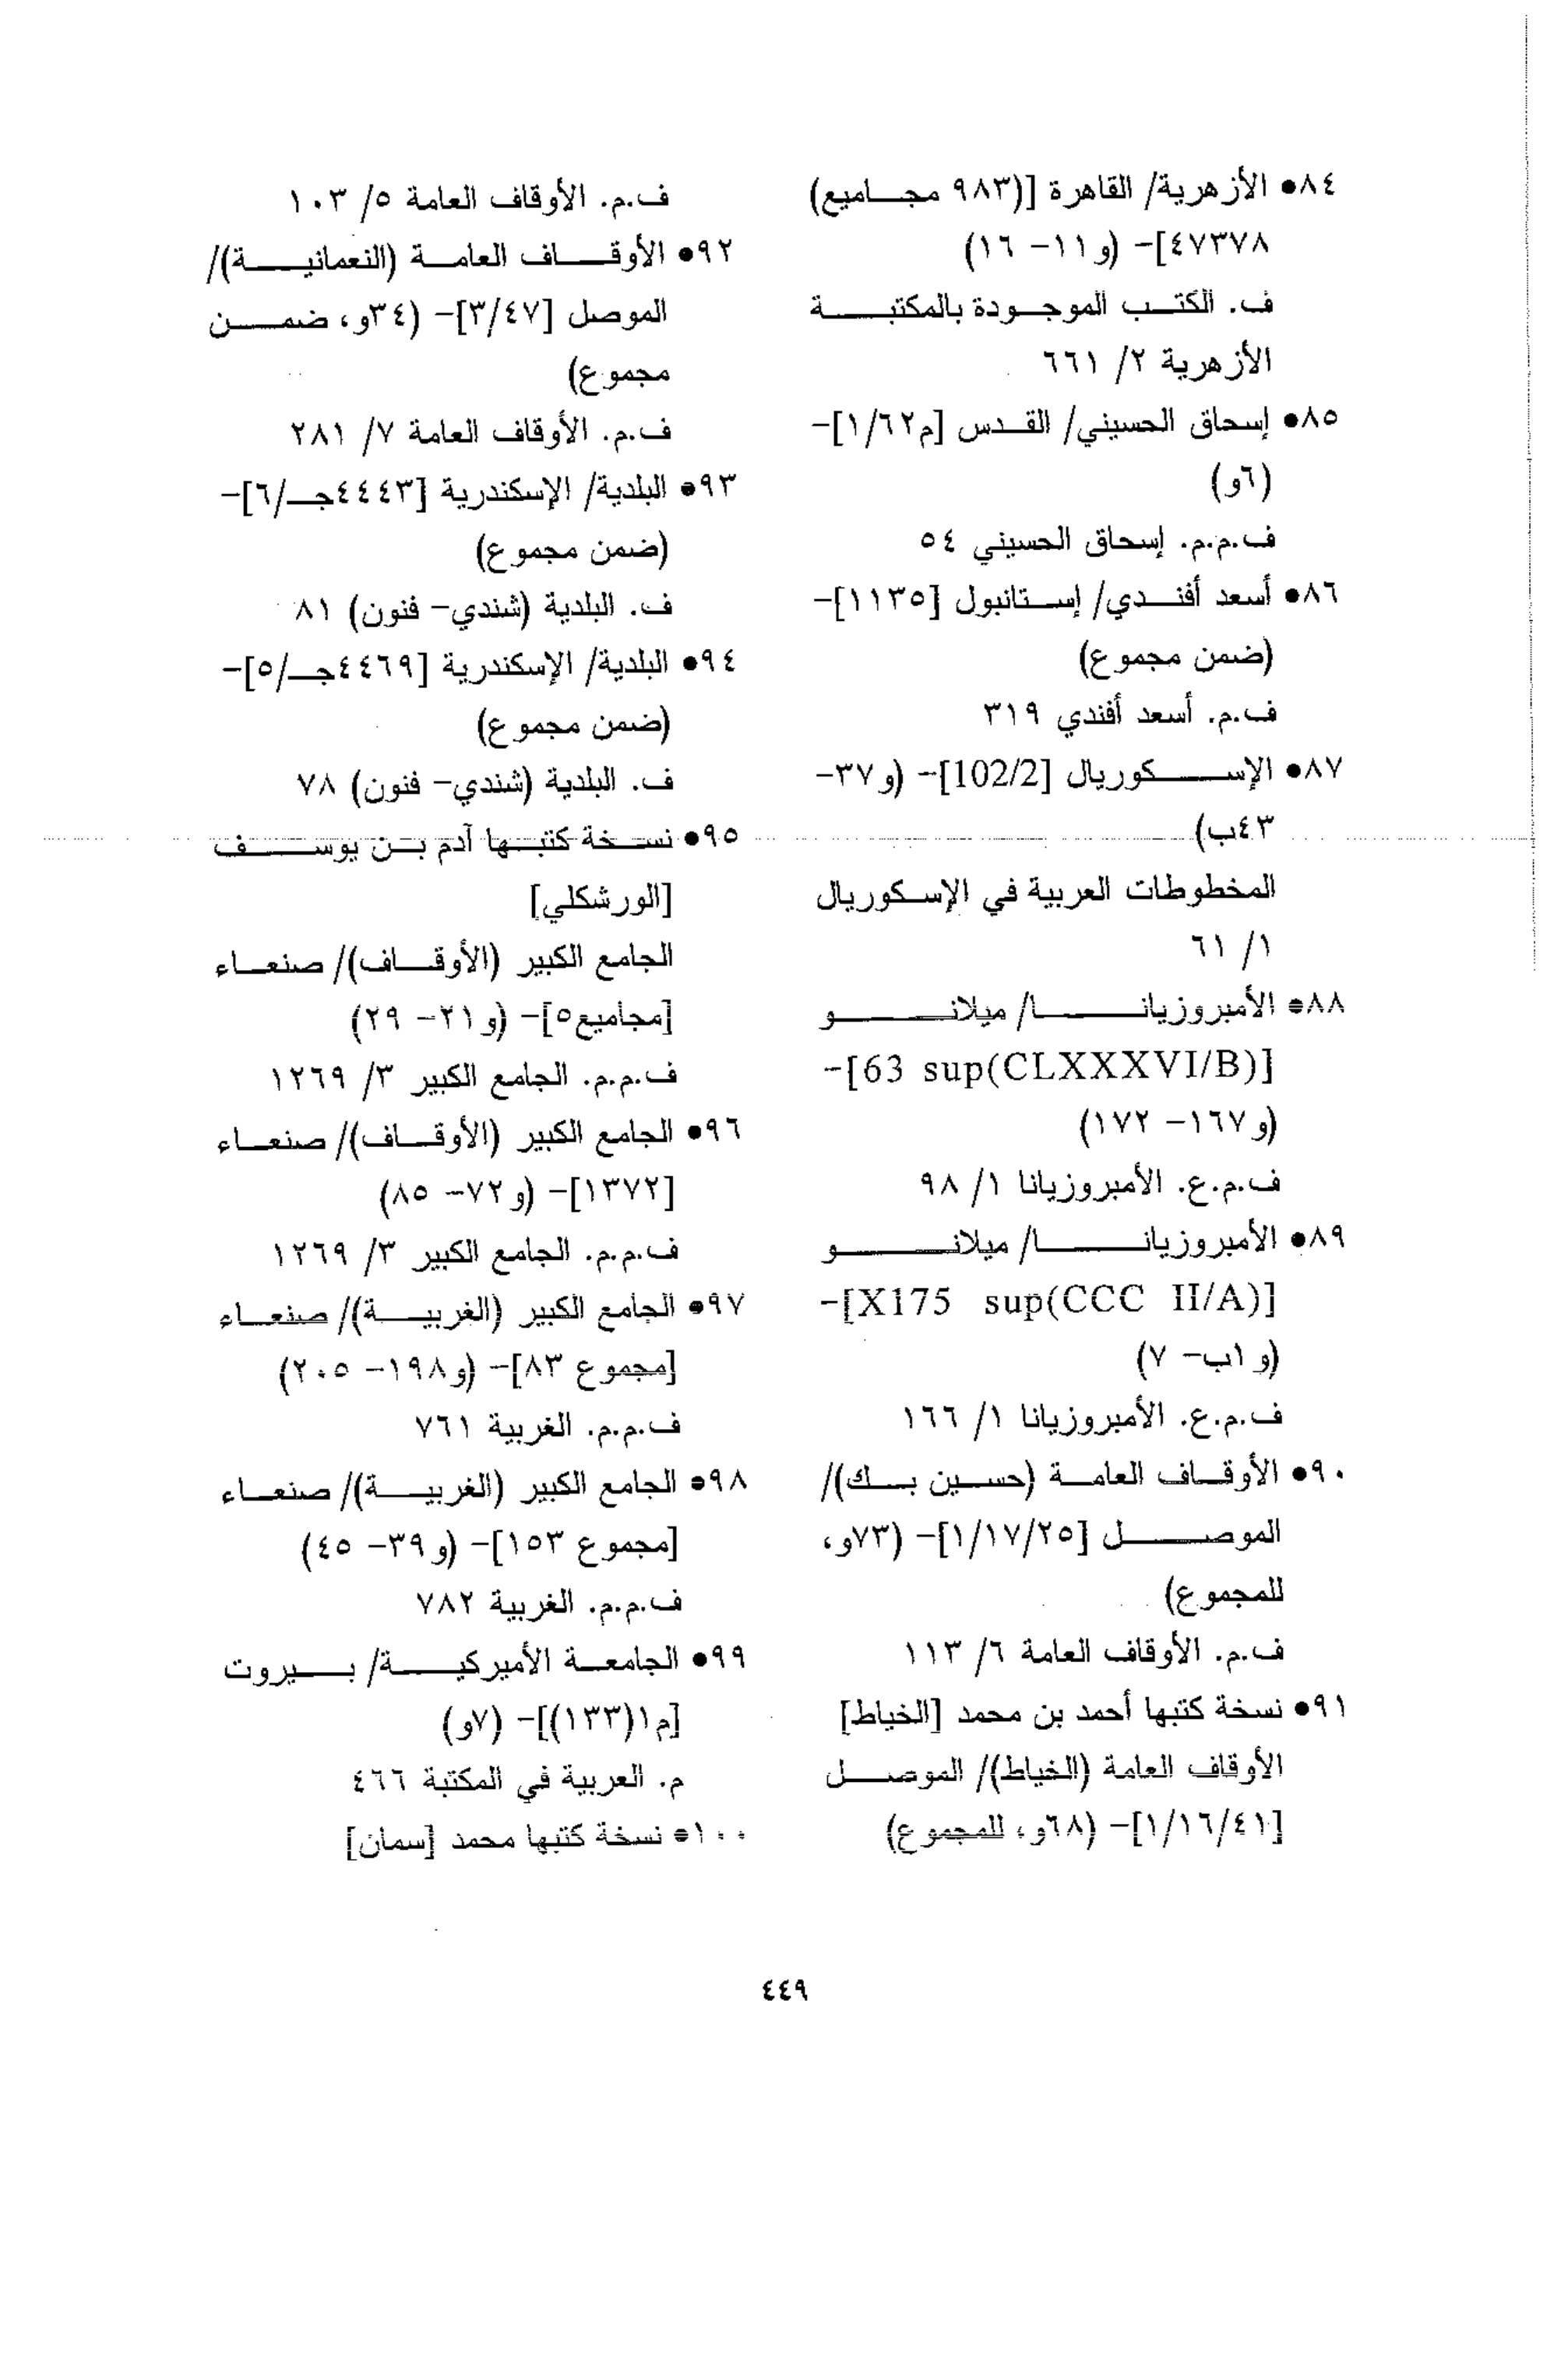 ٨٤• الأزهرية/ القاهرة [(٩٨٣ مجاميع)
٤٧٣٧٨]- (و١١- ١٦)
ف. الكتب الموجودة بالمكتبة
الأزهرية ٢/ ٦٦١
٨٥• إسحاق الحسيني/ القدس [م١/٦٢]-
(٦و)
ف.م.م. إسحاق الحسيني ٥٤
٨٦• أسعد أفندي/ إستانبول [١١٣٥]-
(ضمن مجموع)
ف.م. أسعد أفندي ٣١٩
٨٧• الإسكوريال [102/2]- (و٣٧-
٤٣ب)
المخطوطات العربية في الإسكوريال
١/ ٦١
٨٨• الأمبروزيانا/ ميلانو
[63 sup(CLXXXVI/B)]-
(و١٦٧- ١٧٢)
ف.م.ع. الأمبروزيانا ١/ ٩٨
٨٩• الأمبروزيانا/ ميلانو
[X175 sup(CCC II/A)]-
(و١ب- ٧)
ف.م.ع. الأمبروزيانا ١/ ١٦٦
٩٠• الأوقاف العامة (حسين بك)/
الموصل [١/١٧/٢٥]- (٧٣و،
للمجموع)
ف.م. الأوقاف العامة ٦/ ١١٣
٩١• نسخة كتبها أحمد بن محمد [الخياط]
الأوقاف العامة (الخياط)/ الموصل
[١/١٦/٤١]- (٦٨و، للمجموع)
ف.م. الأوقاف العامة ٥/ ١٠٣
٩٢• الأوقاف العامة (النعمانية)/
الموصل [٣/٤٧]- (٣٤و، ضمن
مجموع)
ف.م. الأوقاف العامة ٧/ ٢٨١
٩٣• البلدية/ الإسكندرية [٤٤٤٣جـ/٦]-
(ضمن مجموع)
ف. البلدية (شندي- فنون) ٨١
٩٤• البلدية/ الإسكندرية [٤٤٦٩جـ/٥]-
(ضمن مجموع)
ف. البلدية (شندي- فنون) ٧٨
٩٥• نسخة كتبها آدم بن يوسف
[الورشكلي]
الجامع الكبير (الأوقاف)/ صنعاء
[مجاميع٥]- (و٢١- ٢٩)
ف.م.م. الجامع الكبير ٣/ ١٢٦٩
٩٦• الجامع الكبير (الأوقاف)/ صنعاء
[١٣٧٢]- (و٧٢- ٨٥)
ف.م.م. الجامع الكبير ٣/ ١٢٦٩
٩٧• الجامع الكبير (الغربية)/ صنعاء
[مجموع ٨٣]- (و١٩٨- ٢٠٥)
ف.م.م. الغربية ٧٦١
٩٨• الجامع الكبير (الغربية)/ صنعاء
[مجموع ١٥٣]- (و٣٩- ٤٥)
ف.م.م. الغربية ٧٨٢
٩٩• الجامعة الأميركية/ بيروت
[م١(١٣٣)]- (٧و)
م. العربية في المكتبة ٤٦٦
١٠٠• نسخة كتبها محمد [سمان]
٤٤٩